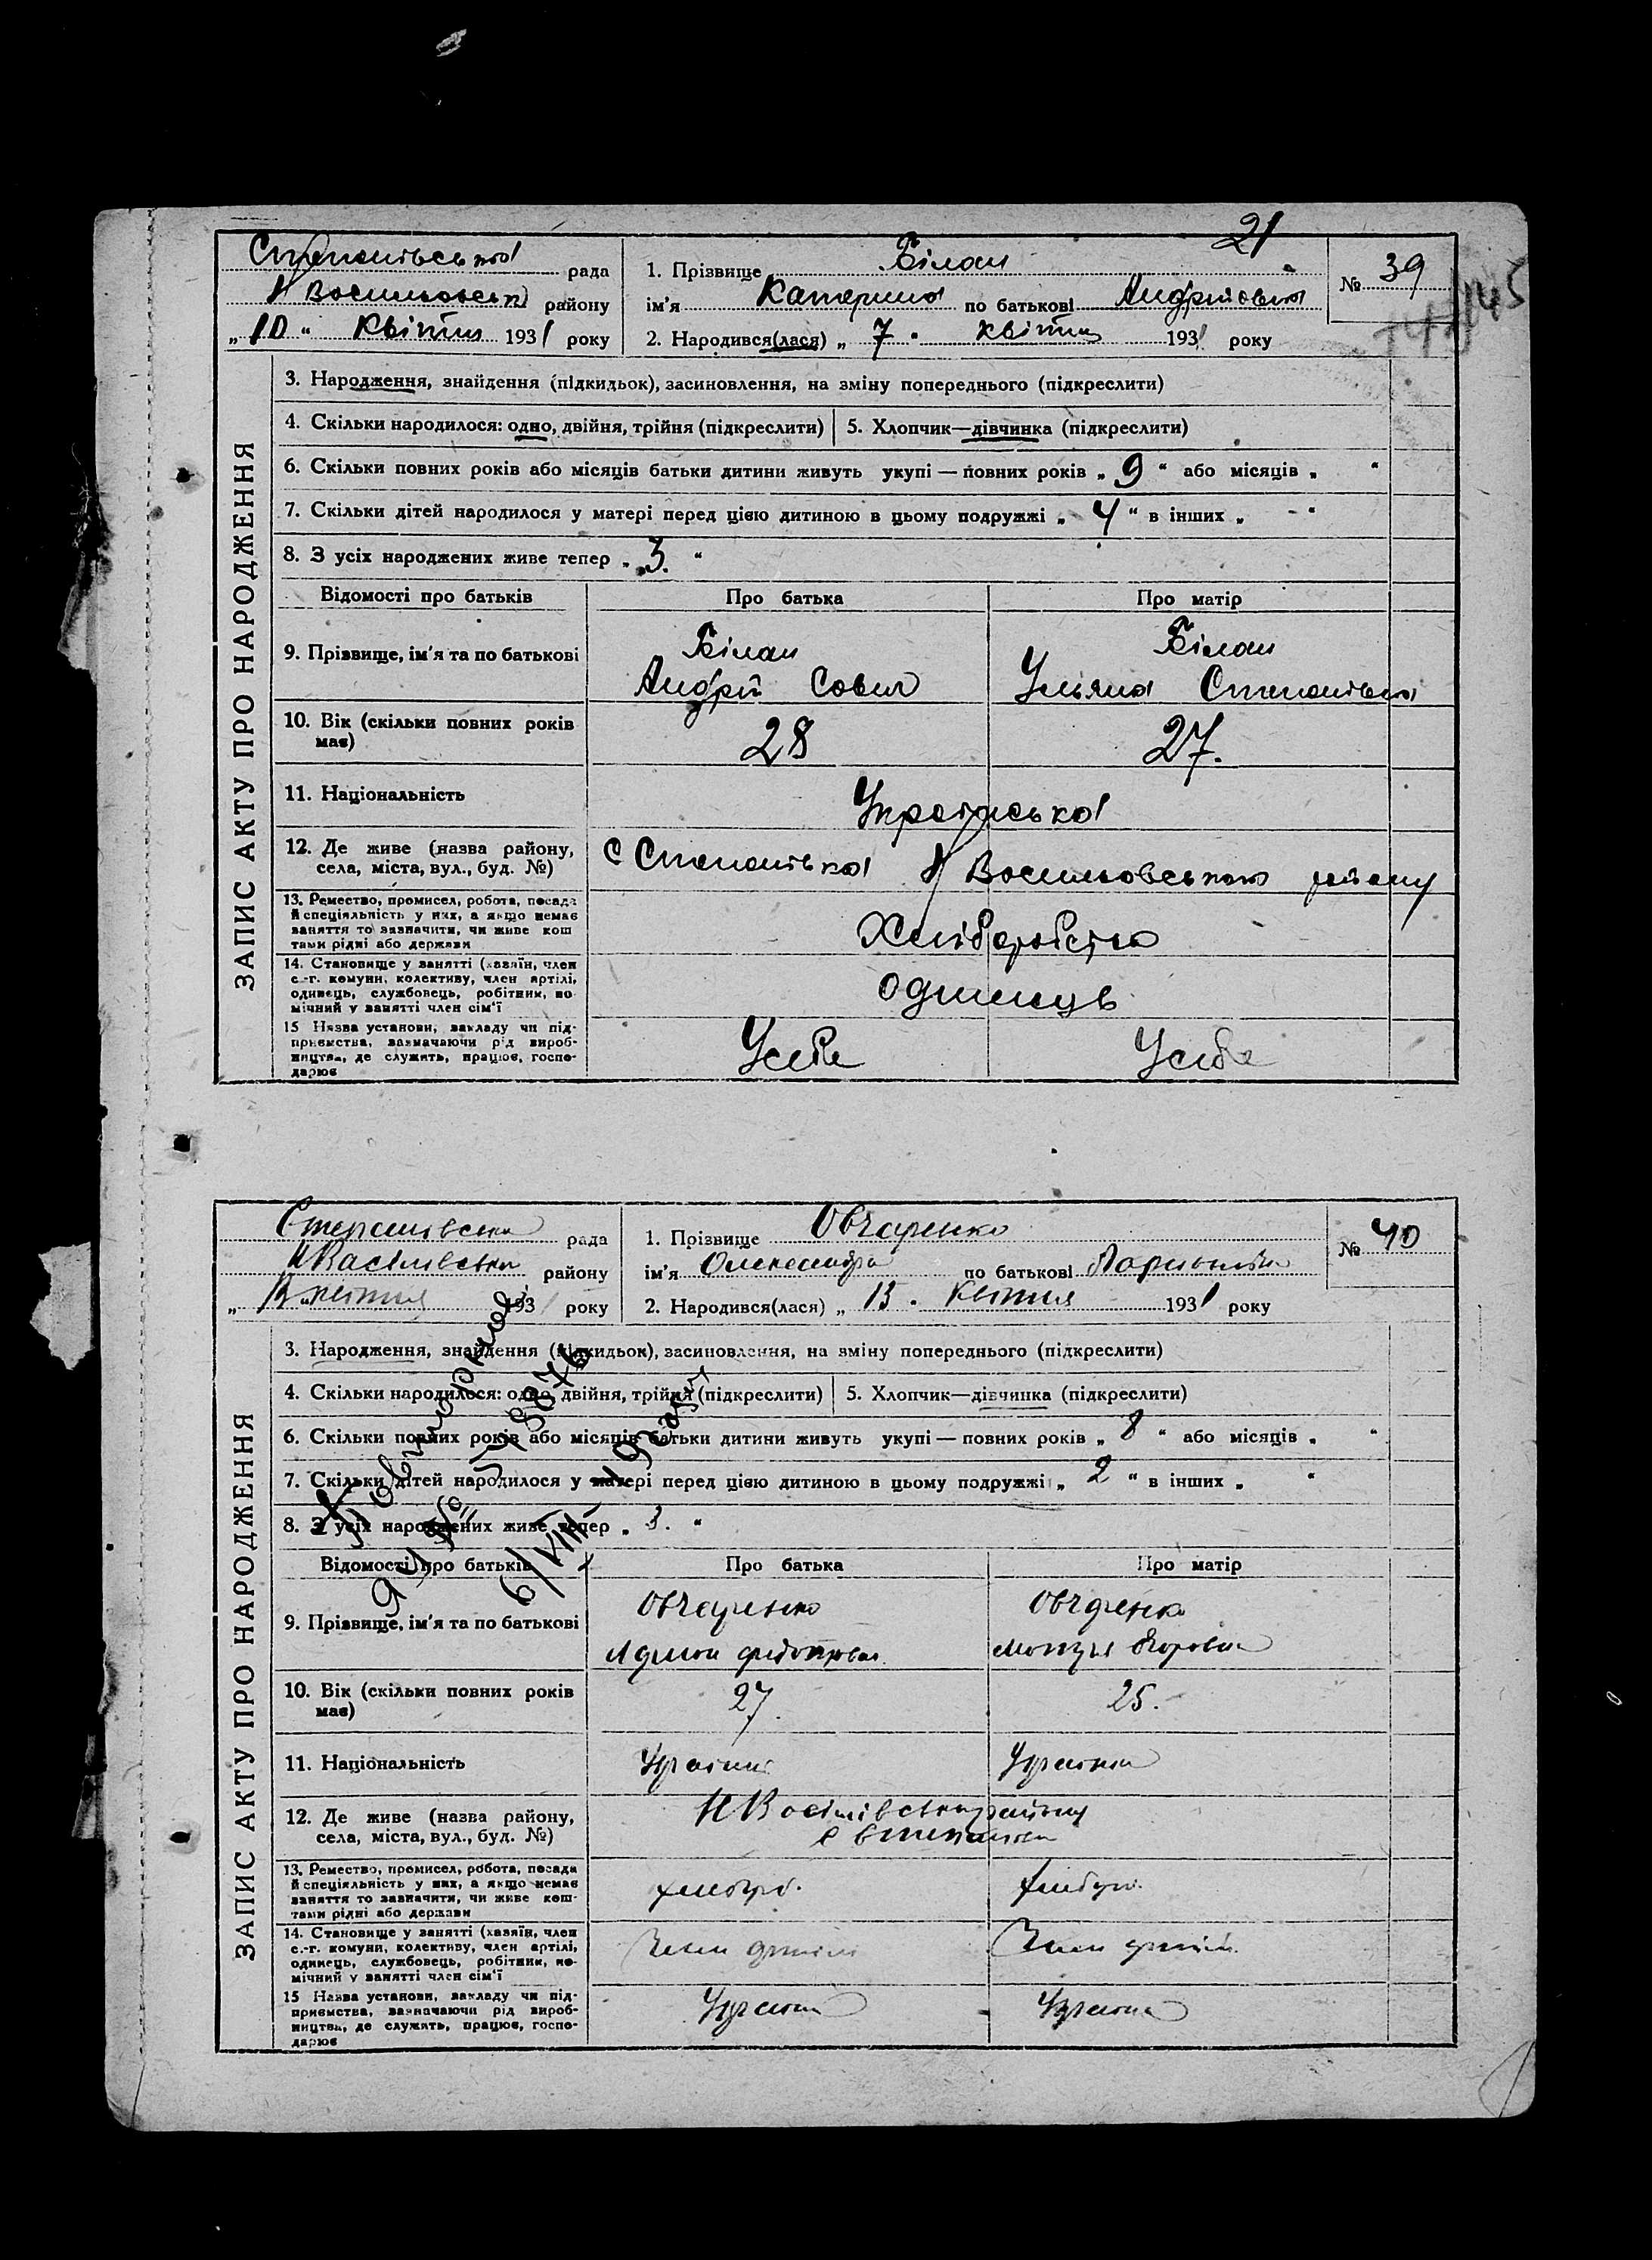 21
Степанівська рада
Н Васильовськ району
„10“ Квітня 1931 року
1. Прізвище Білан
ім'я Катерина по батькові Андріївна
2. Народився(лася) „7“ квітня 1931 року
№ 39
ЗАПИС АКТУ ПРО НАРОДЖЕННЯ
3. Народження, знайдення (підкидьок), засиновлення, на зміну попереднього (підкреслити)
4. Скільки народилося: одно, двійня, трійня (підкреслити) 5. Хлопчик—дівчинка (підкреслити)
6. Скільки повних років або місяців батьки дитини живуть укупі — повних років „9“ або місяців „ “
7. Скільки дітей народилося у матері перед цією дитиною в цьому подружжі „4“ в інших „ - “
8. З усіх народжених живе тепер „3.“
Відомості про батьків Про батька Про матір
9. Прізвище, ім'я та по батькові
Білан Білан
Андрій Савич Уляна Степанівна
10. Вік (скільки повних років має) 28 27.
11. Національність Українська
12. Де живе (назва району, села, міста, вул., буд. №) с Степанівка Н Васильовського району
13. Ремество, промисел, робота, посада
й спеціяльність у них, а якщо немає
заняття то зазначити, чи живе кош
тами рідні або держави
Хліборобство
14. Становище у занятті (хазяїн, член
с.-г. комуни, колективу, член артілі,
одинець, службовець, робітник, по-
мічний у занятті член сім'ї
одинець
15 Назва установи, закладу чи під-
приємства, зазначаючи рід вироб-
ництва, де служить, працює, госпо-
дарює
У себе У себе
Степанівська рада
Н Василівська району
„ “ квітня 1931 року
1. Прізвище Овчаренко
ім'я Олександра по батькові
2. Народився(лася) „13“ Квітня 1931 року
№ 40
Повторное
6/VIII
ЗАПИС АКТУ ПРО НАРОДЖЕННЯ
3. Народження, знайдення (підкидьок), засиновлення, на зміну попереднього (підкреслити)
4. Скільки народилося: одно, двійня, трійня (підкреслити) 5. Хлопчик—дівчинка (підкреслити)
6. Скільки повних років або місяців батьки дитини живуть укупі — повних років „8“ або місяців „ “
7. Скільки дітей народилося у матері перед цією дитиною в цьому подружжі „2“ в інших „ “
8. З усіх народжених живе тепер „3.“
Відомості про батьків Про батька Про матір
9. Прізвище, ім'я та по батькові
Овчаренко Овчаренко
10. Вік (скільки повних років має) 27. 25.
11. Національність Україн Українка
12. Де живе (назва району, села, міста, вул., буд. №)
Н Василівський району
с Степанівка
13. Ремество, промисел, робота, посада
й спеціяльність у них, а якщо немає
заняття то зазначити, чи живе кош-
тами рідні або держави
хлібороб. хлібороб.
14. Становище у занятті (хазяїн, член
с.-г. комуни, колективу, член артілі,
одинець, службовець, робітник, по-
мічний у занятті член сім'ї
Член артілі Член артілі
15 Назва установи, закладу чи під-
приємства, зазначаючи рід вироб-
ництва, де служить, працює, госпо-
дарює